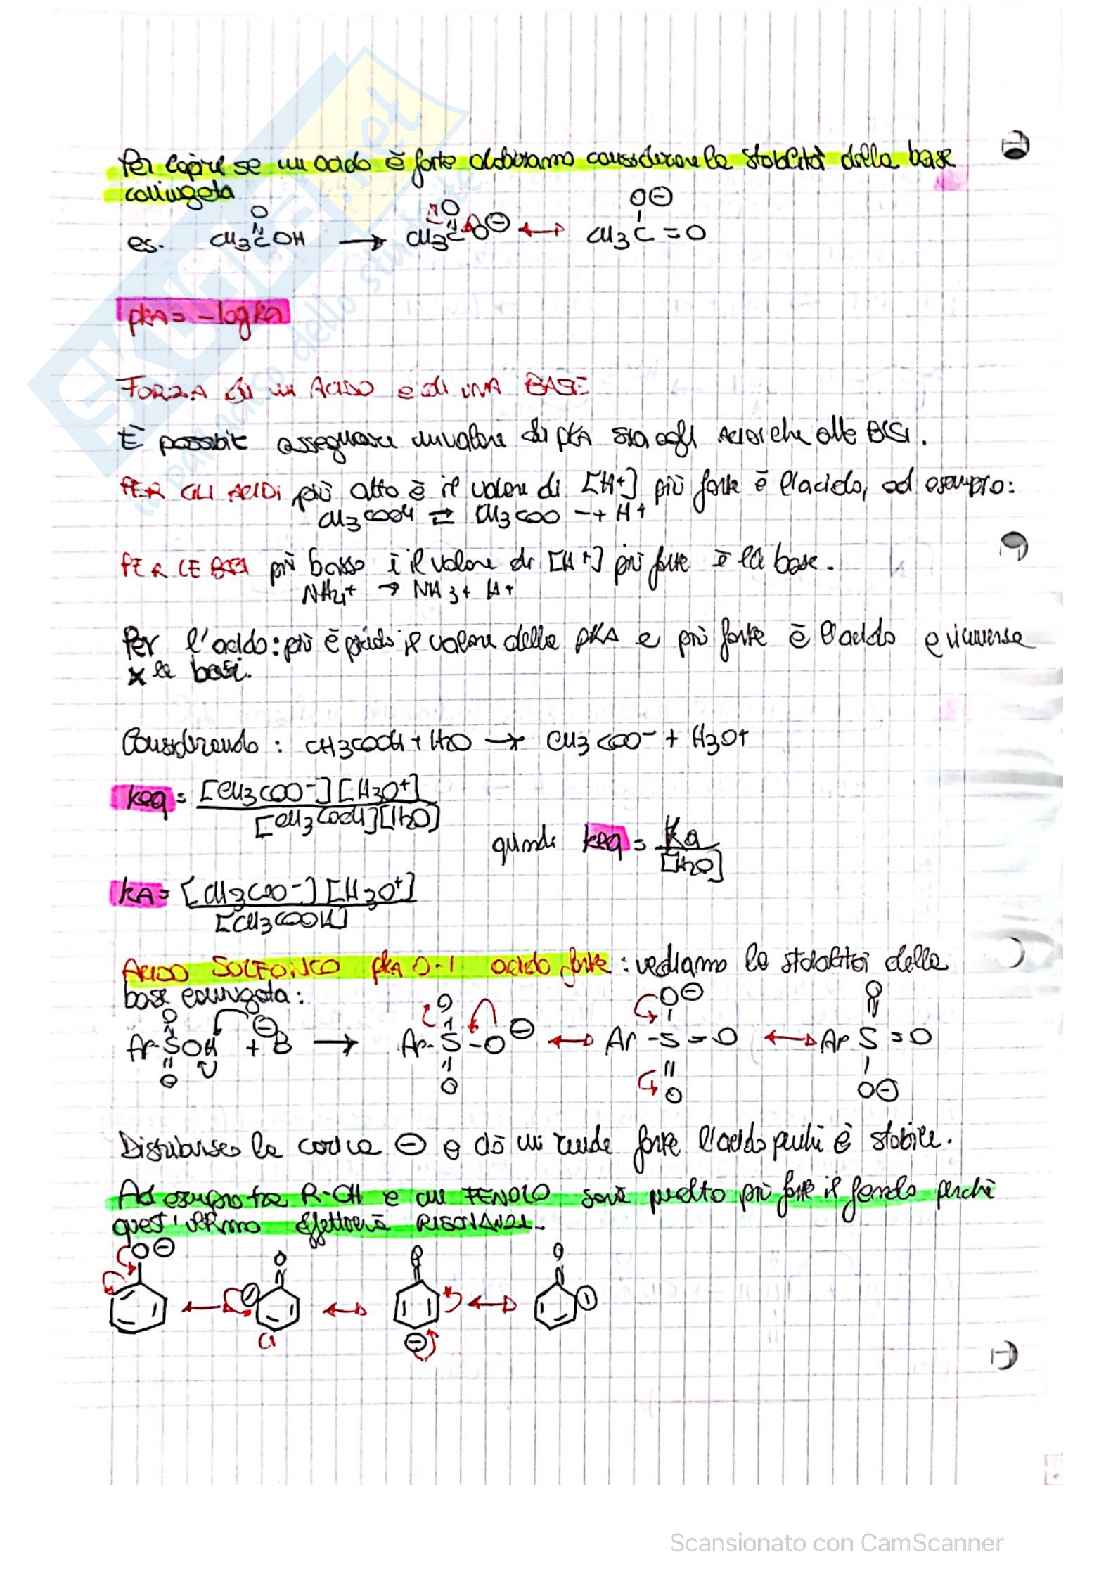 Per capire se un acido è forte dobbiamo considerare la stabilità della base
coniugata
es. CH3COOH → CH3COO⊖ ↔ CH3C=O
O⊖
pKA = -logKA
FORZA di un ACIDO e di UNA BASE
È possibile assegnare un valore di pKA sia agli ACIDI che alle BASI.
PER GLI ACIDI più alto è il valore di [H+] più forte è l'acido, ad esempio:
CH3COOH ⇄ CH3COO- + H+
PER LE BASI più basso è il valore di [H+] più forte è la base.
NH4+ → NH3 + H+
Per l'acido: più è piccolo il valore della pKA e più forte è l'acido e viceversa
x le basi.
Considerando: CH3COOH + H2O → CH3COO- + H3O+
keq = [CH3COO-][H3O+]
[CH3COOH][H2O]
quindi keq = Ka
[H2O]
kA = [CH3COO-][H3O+]
[CH3COOH]
ACIDO SOLFONICO pKA 0-1 acido forte: vediamo la stabilità della
base coniugata:
O O O⊖ O
Ar-S OH + B⊖ → Ar-S-O⊖ ↔ Ar-S=O ↔ Ar S=O
O O O O⊖
Distribuisce la carica ⊖ e ciò mi rende forte l'acido perché è stabile.
Ad esempio tra R-OH e un FENOLO sarà molto più forte il fenolo perché
quest'ultimo effettuerà RISONANZE.
O⊖ O O O
Scansionato con CamScanner